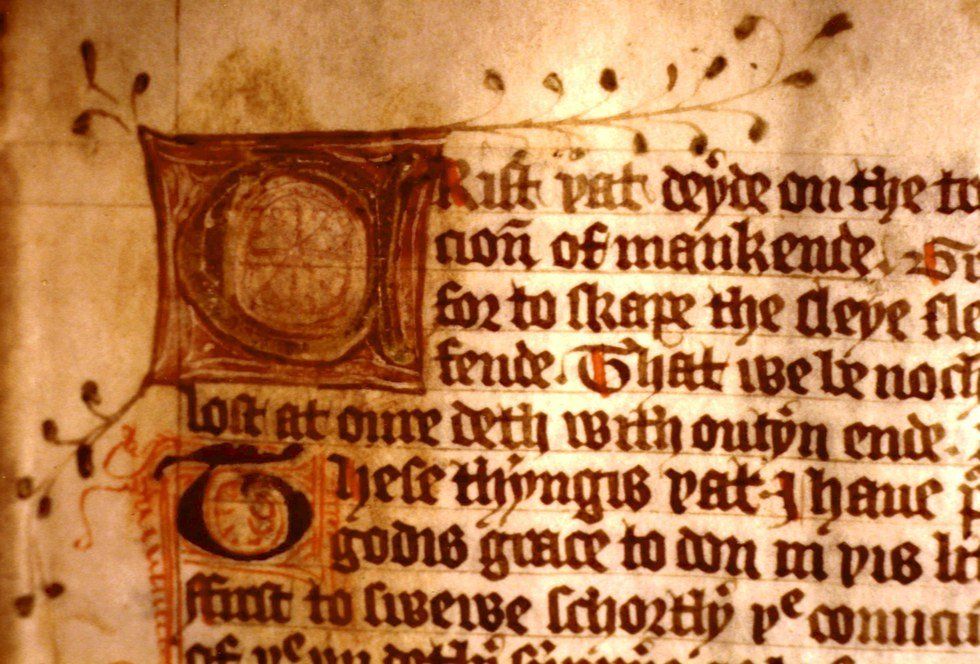 CRist þat deyde on the
cioñ of mankende.
for to skape the sleye
fende. That we be noch
lost at oure deth with outyn ende.
These thyngis þat I haue
godis grace to don in þis
ffirst to swewe schortly þe
of þe